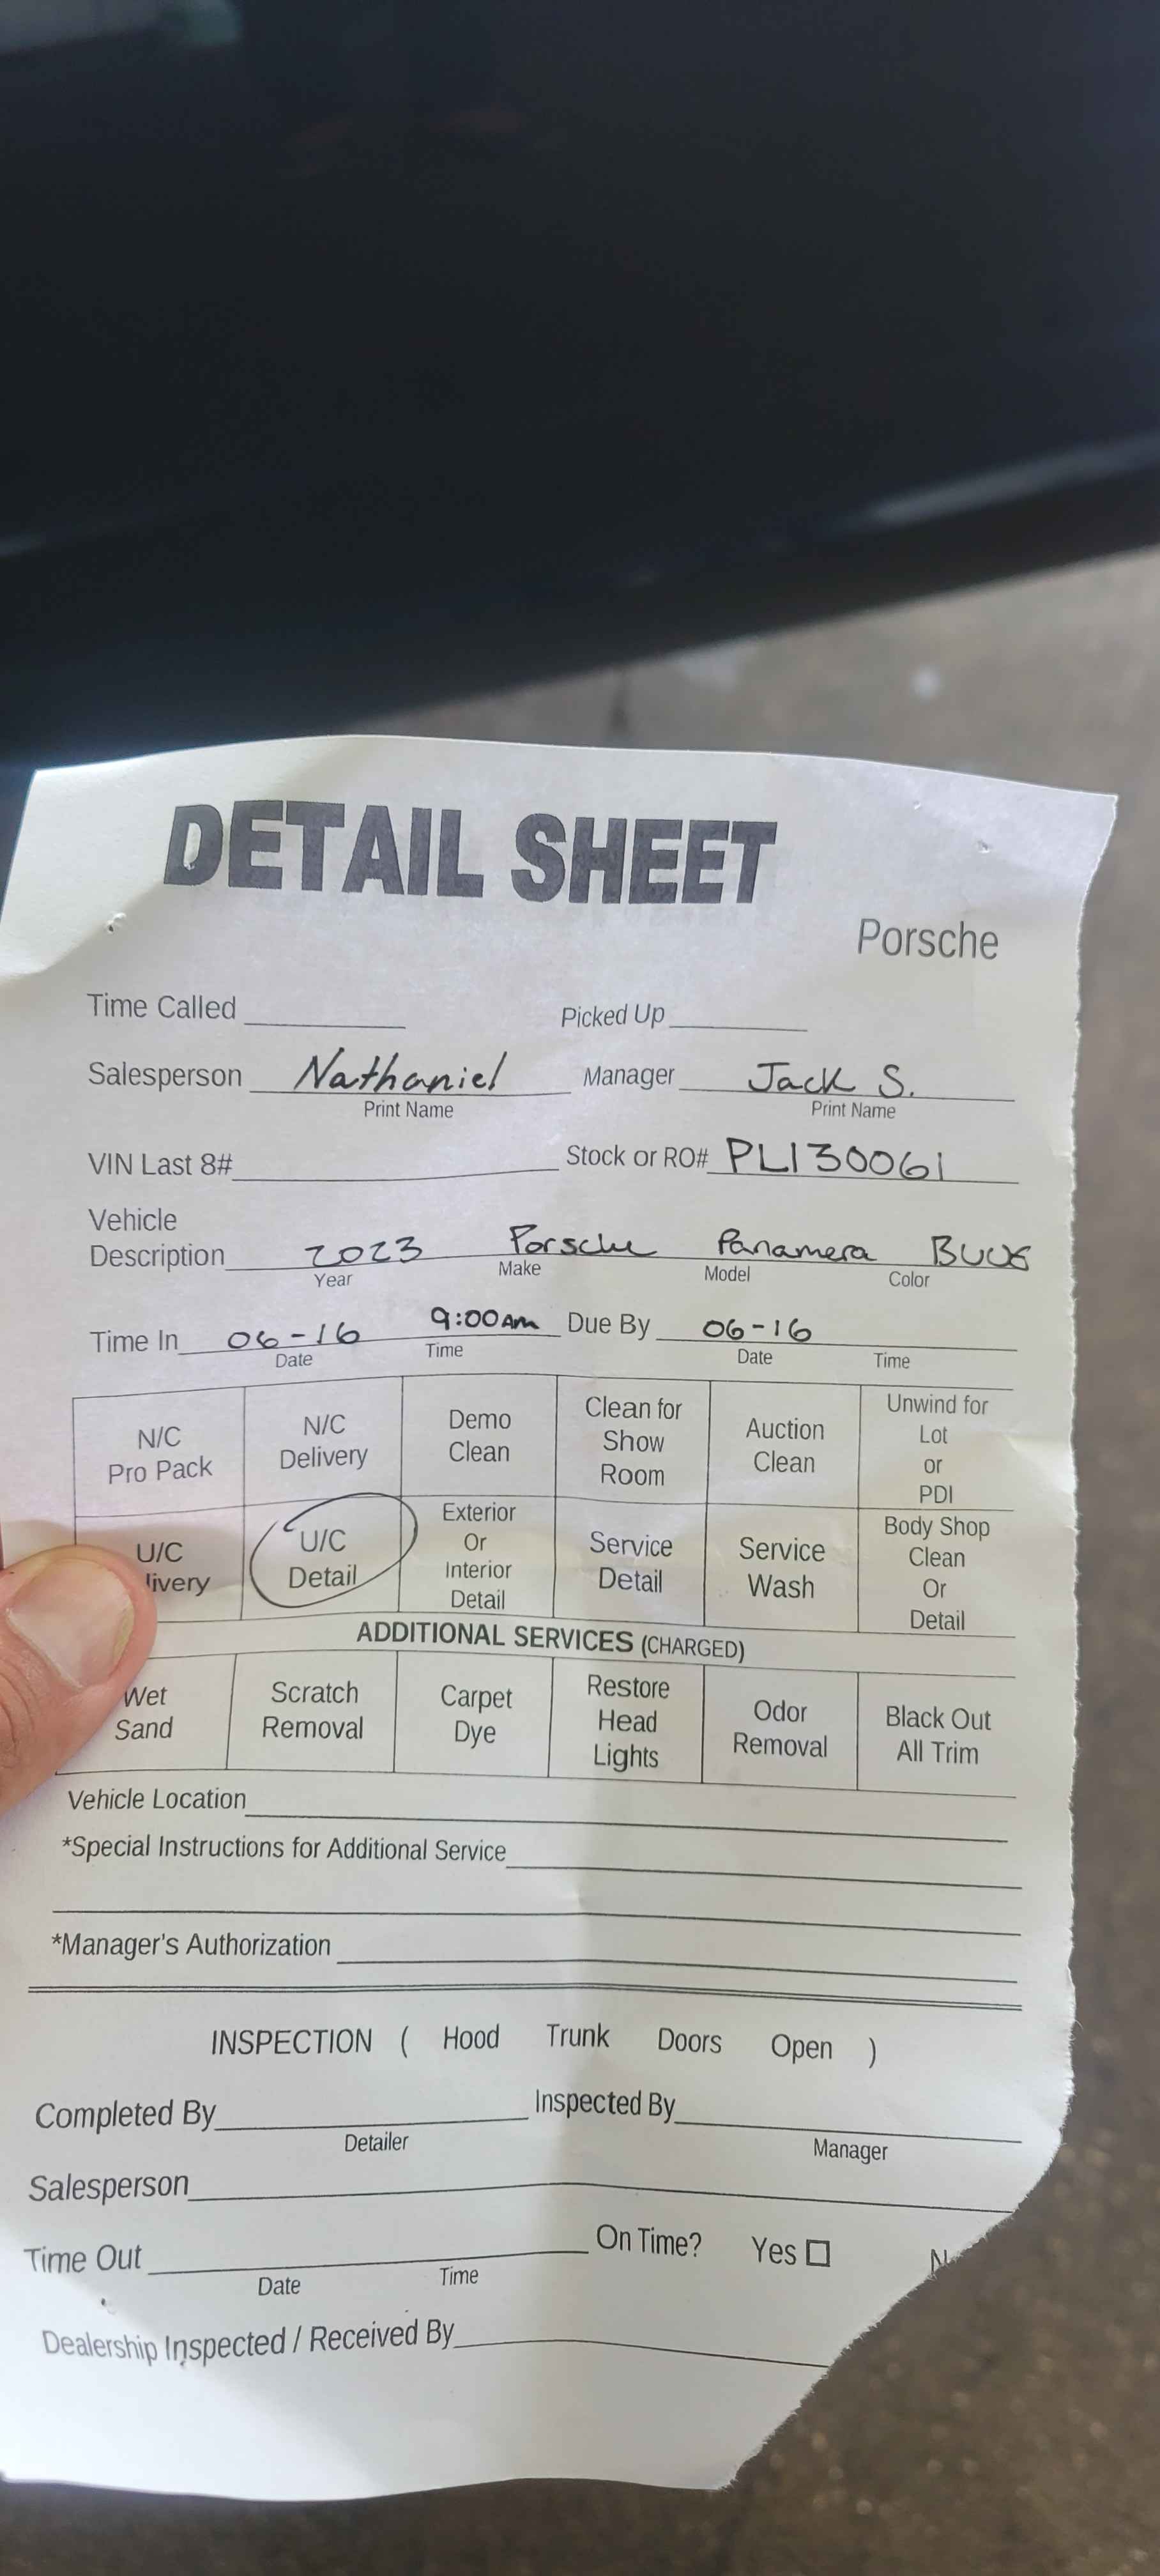 DETAIL SHEET
Porsche
Time Called Picked Up
Salesperson Nathaniel Manager Jack S.
Print Name Print Name
VIN Last 8# Stock or RO# PL130061
Vehicle
Description 2023 Porsche Panamera
Year Make Model Color
Time In 06-16 9:00am Due By 06-16
Date Time Date Time
N/C
Pro Pack
N/C
Delivery
Demo
Clean
Clean for
Show
Room
Auction
Clean
Unwind for
Lot
or
PDI
U/C
livery
U/C
Detail
Exterior
Or
Interior
Detail
Service
Detail
Service
Wash
Body Shop
Clean
Or
Detail
ADDITIONAL SERVICES (CHARGED)
Wet
Sand
Scratch
Removal
Carpet
Dye
Restore
Head
Lights
Odor
Removal
Black Out
All Trim
Vehicle Location
*Special Instructions for Additional Service
*Manager's Authorization
INSPECTION ( Hood Trunk Doors Open )
Completed By Inspected By
Detailer Manager
Salesperson
Time Out On Time? Yes
Date Time
Dealership Inspected / Received By